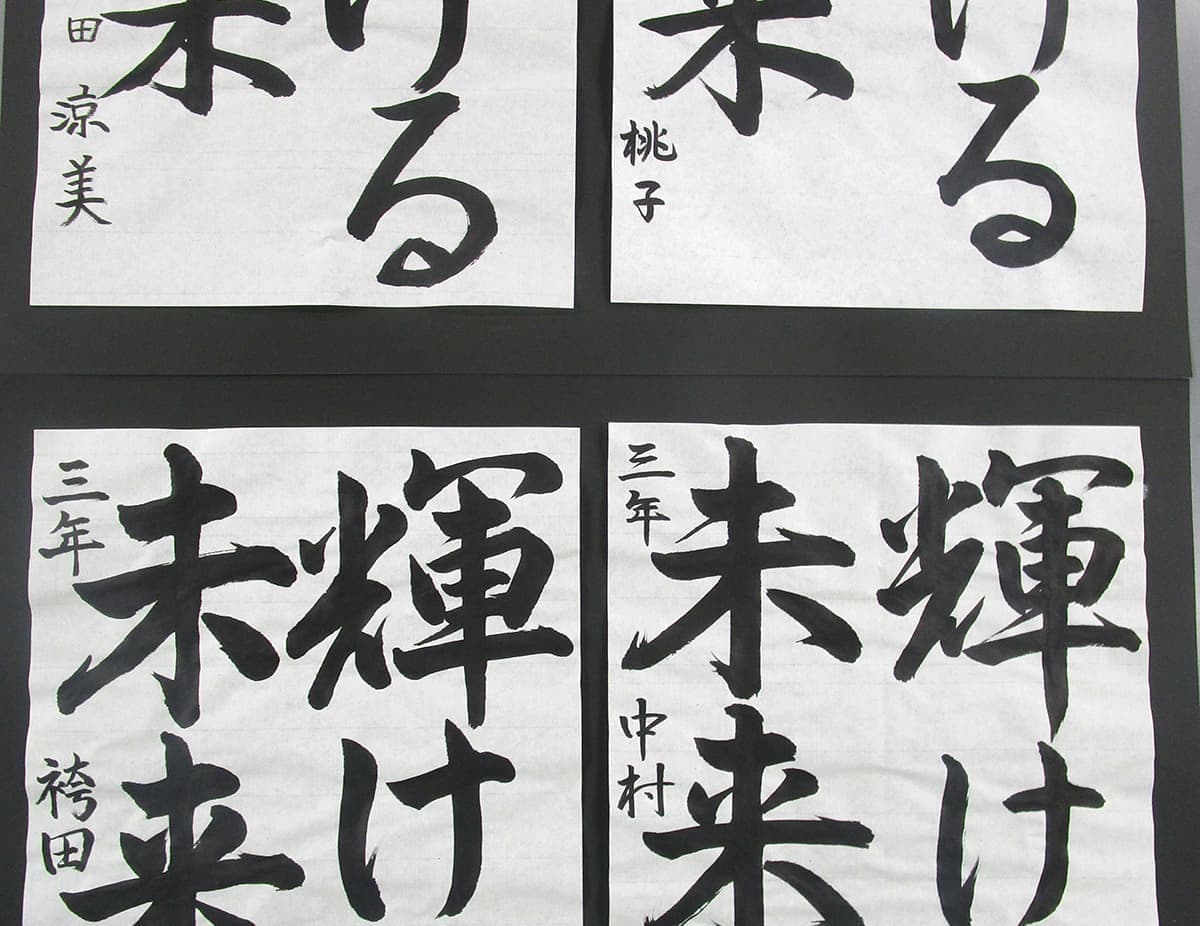 ける
来
桃子
ける
来
田涼美
輝け
未来
三年 中村
輝け
未来
三年 袴田